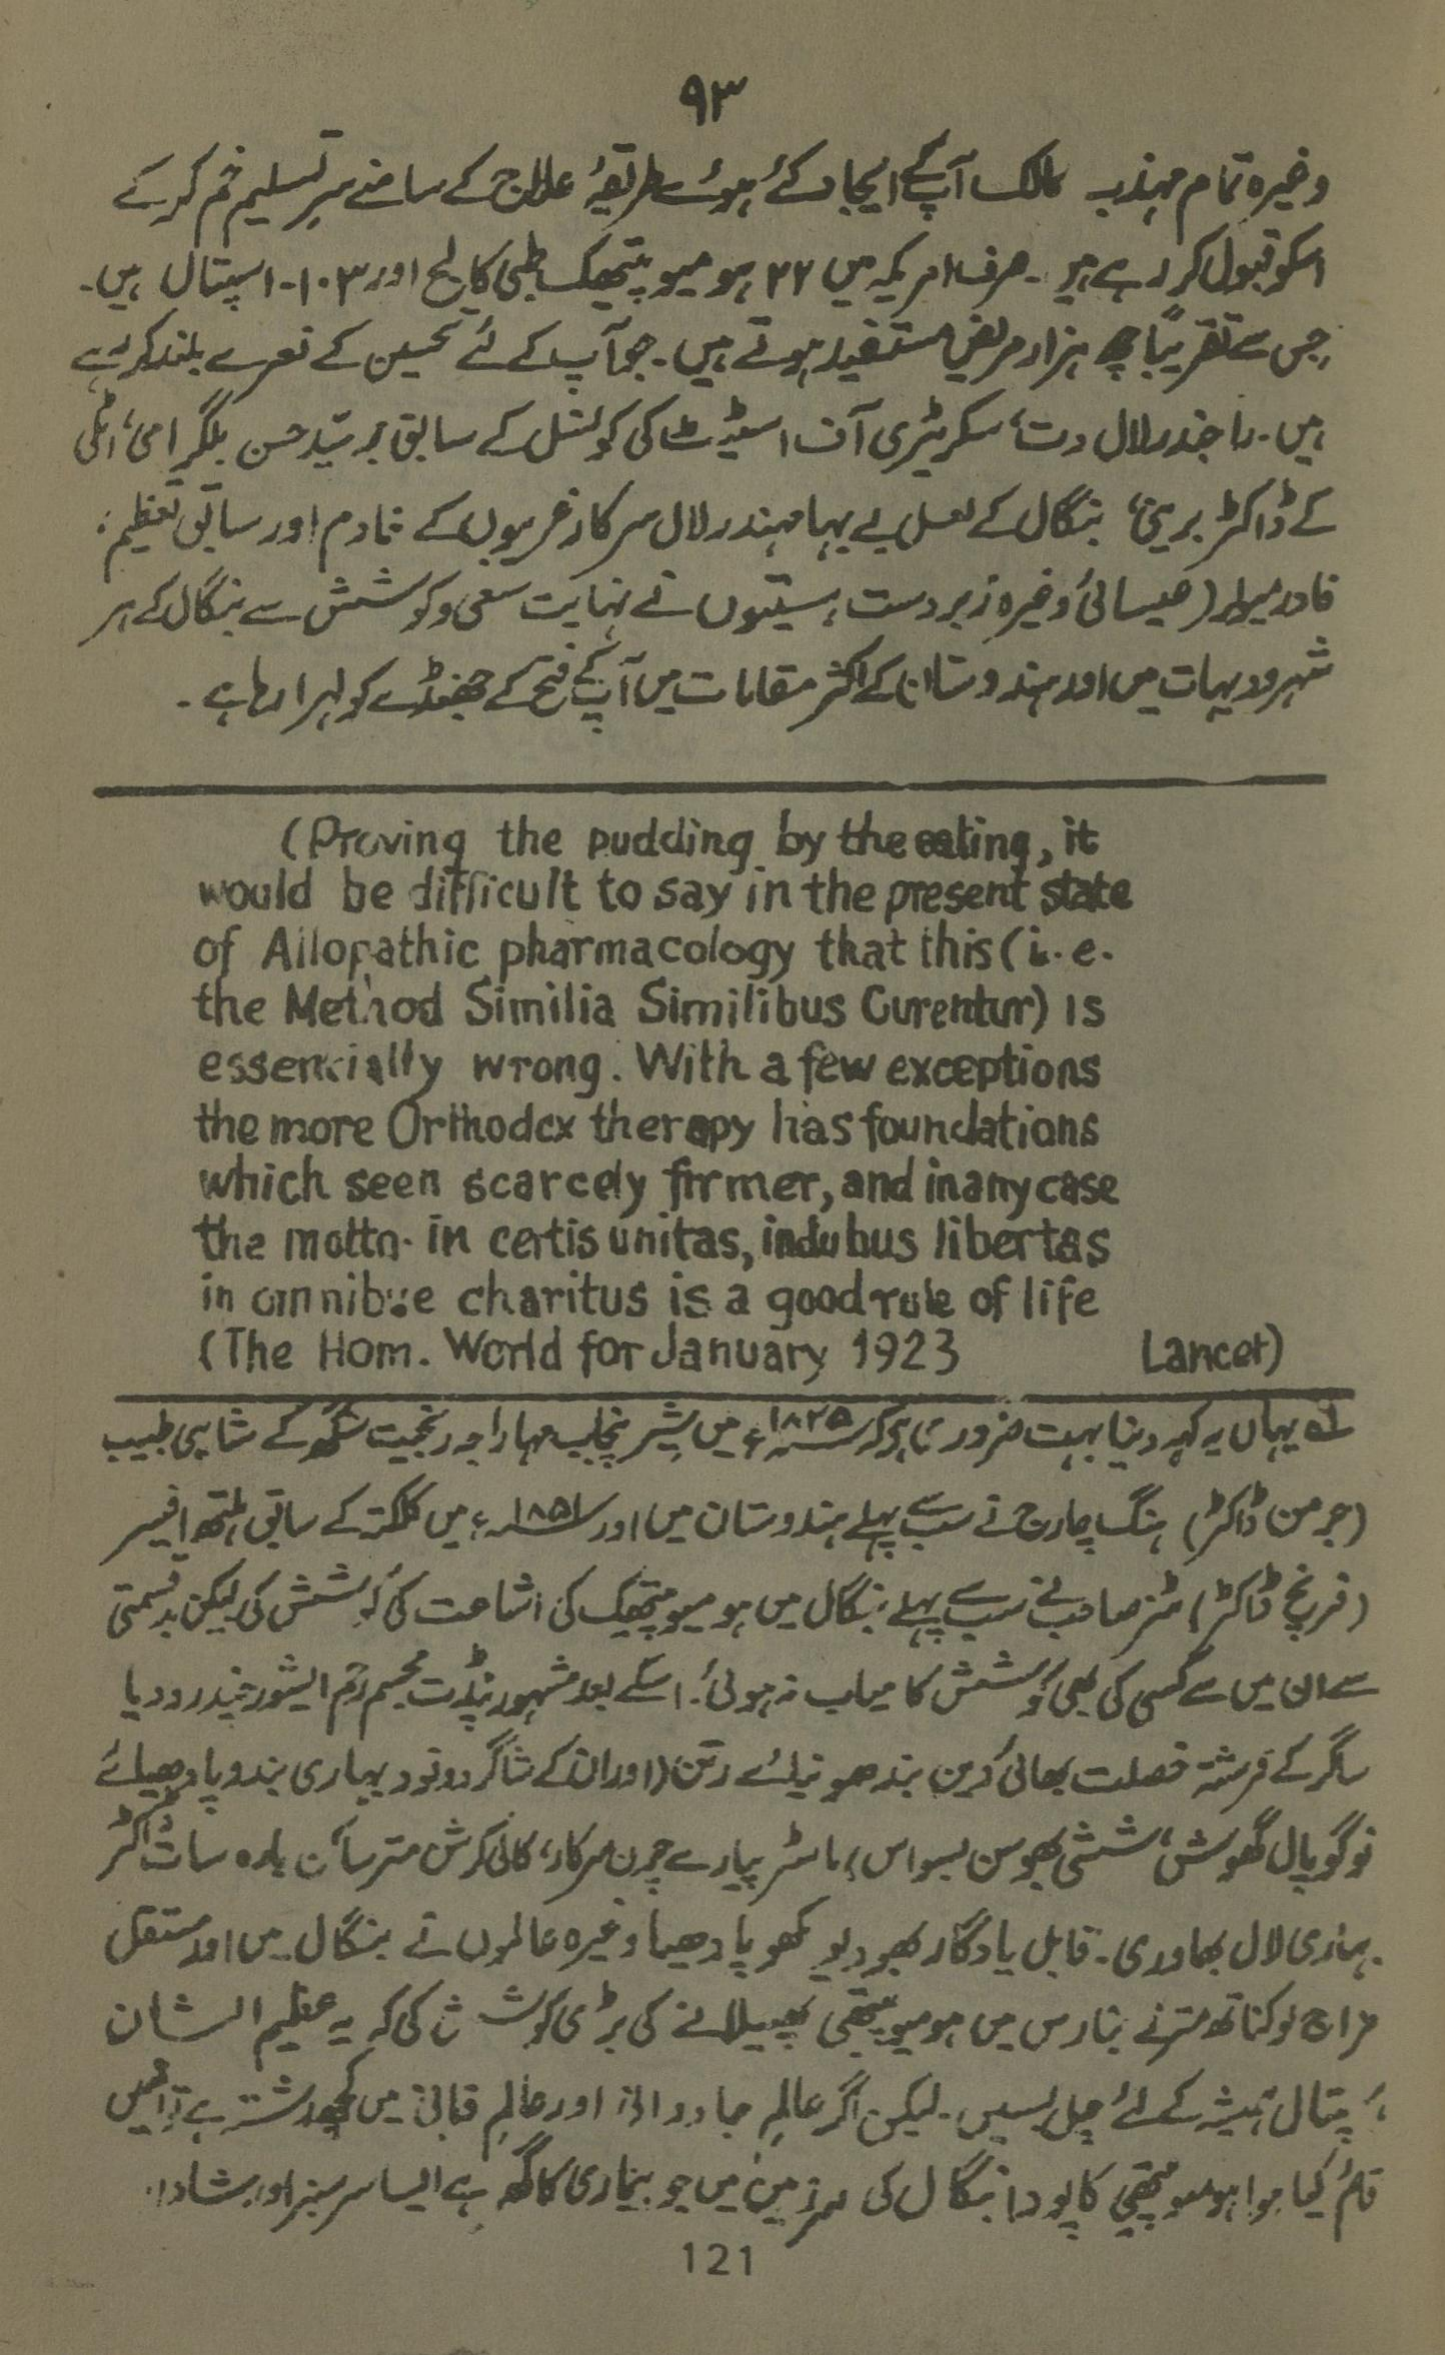 ۹۳
وغیرہ تمام مہذب ممالک آپ کے ایجاد کئے ہوئے طریقۂ علاج کے سامنے سرِ تسلیم خم کر کے
اسکو قبول کر رہے ہیں۔ صرف امریکہ میں ۲۲ ہومیوپیتھک طبی کالج اور ۱۰۳۔ اسپتال ہیں۔
جس سے تقریباً چھ ہزار مریض مستفید ہوتے ہیں۔ جو آپ کے لئے تحسین کے نعرے بلند کر رہے
ہیں۔ راجندر لال دت، سکریٹری آف اسٹیٹ کی کونسل کے سابق سید حسن بلگرامی، اٹلی
کے ڈاکٹر بنگال کے لعل بے بہا مہندر لال سرکار غریبوں کے خادم اور سابق تعظیم،
فادر (عیسائی) وغیرہ زبردست ہستیوں نے نہایت سعی و کوشش سے بنگال کے ہر
شہر و دیہات میں اور ہندوستان کے اکثر مقامات میں آپ کے فتح کے جھنڈے کو لہرا رہا ہے۔
(Proving the pudding by the eating, it
would be difficult to say in the present state
of Allopathic pharmacology that this (i.e.
the Method Similia Similibus Curentur) is
essencially wrong. With a few exceptions
the more Orthodox therapy has foundations
which seen scarcely firmer, and in any case
the motto. in certis unitas, indubus libertas
in omnibue charitus is a good rule of life
(The Hom. World for January 1923 Lancet)
لہ یہاں یہ کہہ دینا بہت ضروری ہے کہ ۱۸۲۵ء میں شیر پنجاب مہاراجہ رنجیت سنگھ کے شاہی طبیب
(جرمن ڈاکٹر) ہنگ چارج نے سب سے پہلے ہندوستان میں اور ۱۸۵۱ء میں کلکتہ کے سابق ہلتھ افیسر
(فرنچ ڈاکٹر) ٹنر صاحب نے سب سے پہلے بنگال میں ہومیوپیتھک کی اشاعت کی کوشش کی لیکن بدقسمتی
سے ان میں سے کسی کی بھی کوشش کامیاب نہ ہوئی۔ اسکے بعد مشہور پنڈت مجسم رحم ایشور چندر ودیا
ساگر کے فرشتہ خصلت بھائی دین بندھو نیائے رتن (اور ان کے شاگرد ونود بہاری بندوپادھیائے
نوگوپال گھوش، ششی بھوسن بسواس) ماسٹر پیارے چرن سرکار، کالی کرشن متر ساکن بارہ سات ڈاکٹر
بہاری لال بھادری۔ قابل یادگار بھودیو مکھوپادھیا وغیرہ عالموں نے بنگال میں اور مستقل
مزاج لوکناتھ متر نے بنارس میں ہومیوپیتھی پھیلانے کی بڑی کوشش کی کہ یہ عظیم الشان
ہمیشہ کے لئے چل بسیں۔ لیکن اگر عالمِ جاودانی اور عالمِ فانی میں کچھ رشتہ ہے تو انھیں
قائم کیا ہوا ہومیوپیتھی کا پودا بنگال کی سرزمین میں جو بیماری کا گھر ہے ایسا سرسبز اور شاداب
121